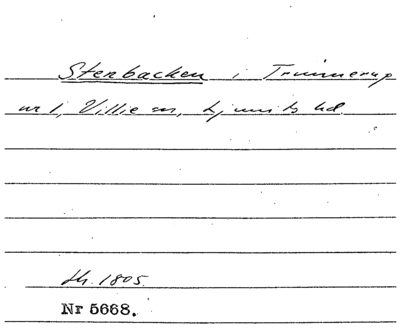 Stenbacken i Trunnerup
nr 1, Villie sn, Ljunits hd.
sk. 1805.
Nr 5668.